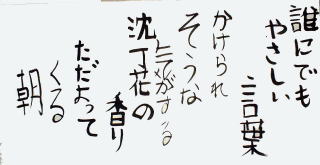 誰にでも
やさしい
言葉
かけられ
そうな
気がする
沈丁花の
香り
ただよって
くる
朝